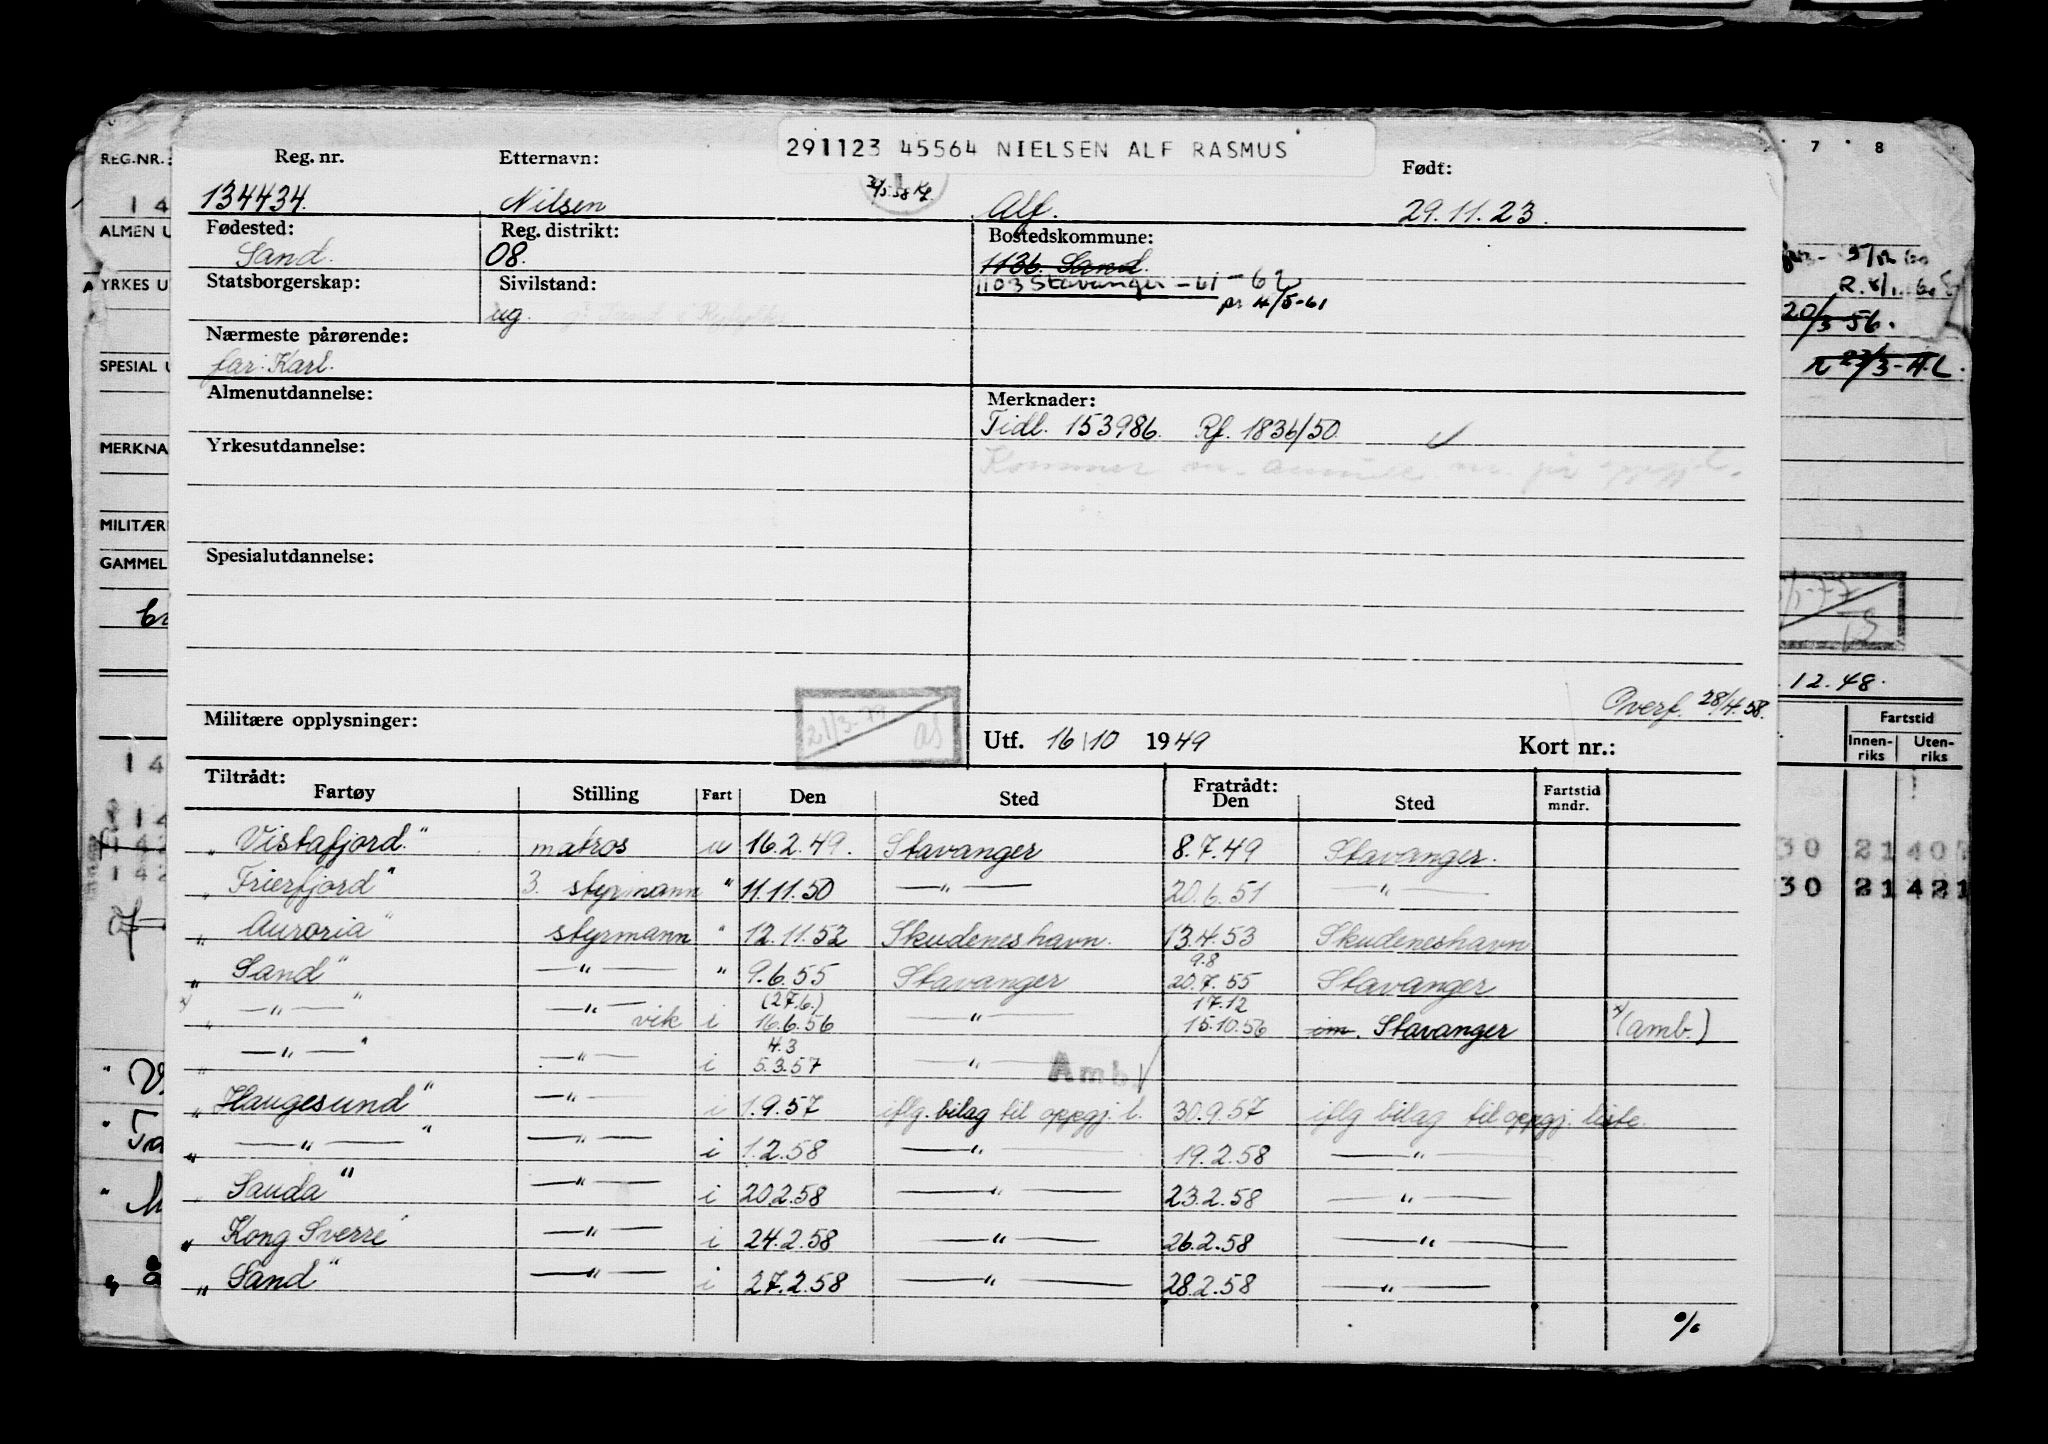 291123 45564 NIELSEN ALF RASMUS
Reg. nr. Etternavn: Født:
134434. Nilsen Alf. 29.11.23.
Fødested: Reg. distrikt: Bostedskommune:
Sand. 08. 1136. Sand.
Statsborgerskap: Sivilstand: 1103 Stavanger - 61 - 62
ug. pr. 4/5-61
Nærmeste pårørende:
far: Karl.
Almenutdannelse: Merknader:
Tidl. 153986. Rf. 1836/50
Yrkesutdannelse:
Spesialutdannelse:
Overf. 28/4.58.
Militære opplysninger: 21/3-77 as
Utf. 16/10 1949 Kort nr.:
Tiltrådt: Fratrådt:
Fartøy Stilling Fart Den Sted Den Sted Fartstid mndr.
„ Vistafjord." matros u 16.2.49. Stavanger 8.7.49 Stavanger.
„ Frierfjord" 3. styrmann " 11.11.50 —"— 20.6.51 —"—
„ Auroria" styrmann " 12.11.52 Skudeneshavn. 13.4.53 Skudeneshavn
9.8
„ Sand" —"— " 9.6.55 Stavanger 20.7.55 Stavanger
(27.6.) 17.12
x) „ —"— " —"— vik i 16.6.56 —"— 15.10.56 im. Stavanger x) (amb.)
4.3
„ —"— " —"— i 5.3.57 —"— Amb.
„ Haugesund" —"— i 1.9.57 iflg. bilag til oppgj. l. 30.9.57 iflg bilag til oppgj. liste.
„ —"— " —"— i 1.2.58 —"— 19.2.58 —"—
„ Sauda" —"— i 20.2.58 —"— 23.2.58 —"—
„ Kong Sverre" —"— i 24.2.58 —"— 26.2.58 —"—
„ Sand" —"— i 27.2.58 —"— 28.2.58 —"—
%
REG.NR.:
14
ALMEN U
YRKES U
SPESIAL U
MERKNA
MILITÆR
GAMMEL
14
14
142
142
7 8
20/3 56.
R 23/3-A.L.
.12.48.
Fartstid
Innen-riks Uten-riks
30 21 40
30 21421